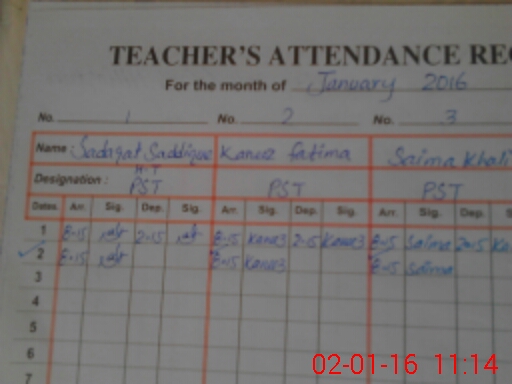 TEACHER'S ATTENDANCE REG
For the month of January 2016
No. 1 No. 2 No. 3
Name: Sadaqat Saddique Kaneez Fatima Saima Khali
H.T
Designation: PST PST PST
Dates. Arr. Sig. Dep. Sig. Arr. Sig. Dep. Sig. Arr. Sig. Dep. S
1 8-15 2-15 8-15 2-15 8-15 Saima 2-15
2 8-15 8-15 8-15 Saima
3
4
5
6
7
02-01-16 11:14